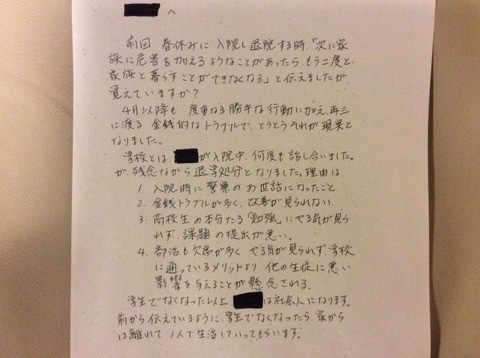 へ
前回 春休みに入院し退院する時、「次に家
族に危害を加えるようなことがあったら、もう二度と、
家族と暮らすことができなくなる」と伝えましたが
覚えていますか？
4月以降も 度重なる勝手な行動に加え、再三
に渡る 金銭的なトラブルで、とうとうそれが現実と
なりました。
学校とは、が入院中、何度も話し合いました。
が、残念ながら退学処分となりました。理由は、
1. 入院時に警察のお世話になったこと
2. 金銭トラブルが多く、改善が見られない。
3. 高校生の本分たる「勉強」にやる気が見ら
れず、課題の提出が悪い。
4. 部活も欠席が多く やる気が見られず、学校
に通っているメリットより 他の生徒に悪い
影響を与えることが懸念される。
学生でなくなった以上 は社会人になります。
前から伝えているように、学生でなくなったら 家から
は離れて 1人で生活していってもらいます。